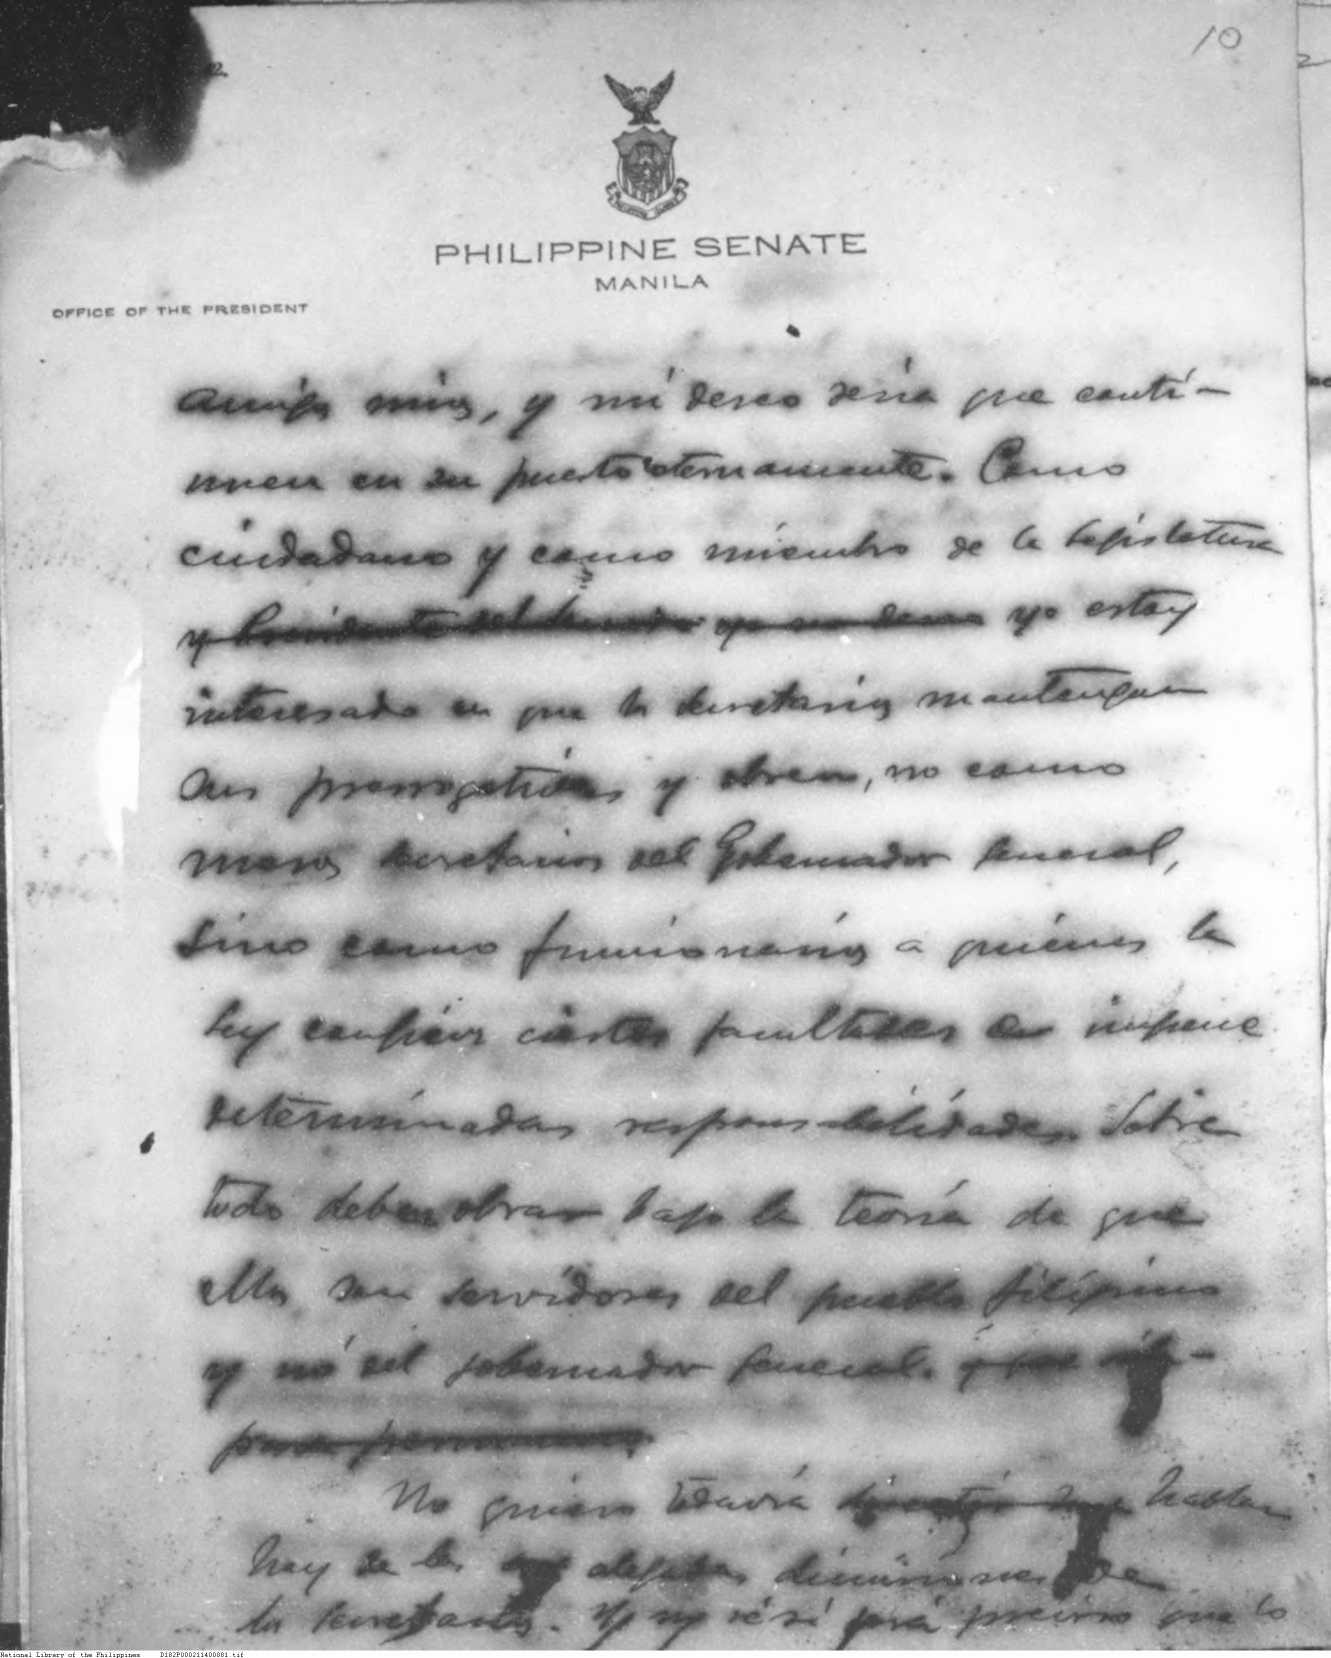 10
PHILIPPINE SENATE
MANILA
OFFICE OF THE PRESIDENT
amigos mios, y mi deseo sería que conti-
nuen en su puesto eternamente. Como
ciudadano y como miembro de la legislatura
y Presidente del Senado yo estoy
interesado en que los secretarios mantengan
sus prerrogativas y obren, no como
meros secretarios del Gobernador General,
sino como funcionarios a quienes la
ley confiere ciertas facultades e impone
determinadas responsabilidades. Sobre
todo deben obrar bajo la teoría de que
ellos son servidores del pueblo filipino
y no del gobernador general.
No quiero todavía hablar
hoy de las dimisiones de
los secretarios. Yo no sé si será preciso que lo
National Library of the Philippines D182P000211400081.tif